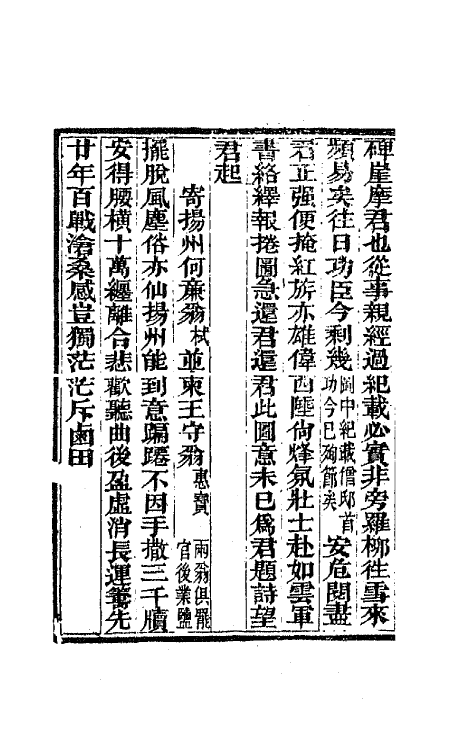 碑崖摩君也從事親經過紀載必實非旁羅柳往雪來
頻易矣往日功臣今剩幾圖中紀載僧邸首功今已殉節矣安危閱盡
君正强便掩紅旂亦雄偉西陲尙烽氛壯士赴如雲軍
書絡繹報捷圖急還君還君此圖意未已爲君題詩望
君起
寄揚州何廉翁栻並柬王守翁惠寶兩翁俱罷官後業鹽
擺脫風塵俗亦仙揚州能到意蹁躚不因手撒三千牘
安得腰橫十萬纏離合悲歡聽曲後盈虛消長運籌先
廿年百戰滄桑感豈獨茫茫斥鹵田